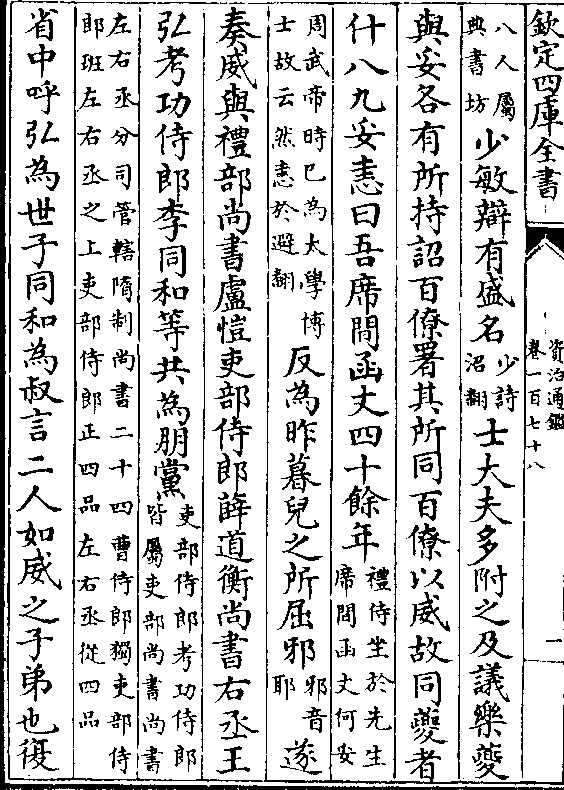 欽定四庫全書
資治通鑑
卷一百七十八
一
八人屬
典書坊
少敏辯有盛名
少詩
沼翻
士大夫多附之及議樂夔
與妥各有所持詔百僚署其所同百僚以威故同夔者
什八九妥恚曰吾席間函丈四十餘年
禮侍坐於先生
席間函丈何妥
周武帝時已為太學博
士故云然恚於避翻
反為昨暮兒之所屈邪
邪音
耶
遂
奏威與禮部尚書盧愷吏部侍郎薛道衡尚書右丞王
弘考功侍郎李同和等共為朋黨
吏部侍郎考功侍郎
皆屬吏部尚書尚書
左右丞分司管轄隋制尚書二十四曹侍郎獨吏部侍
郎班左右丞之上吏部侍郎正四品左右丞從四品
省中呼弘為世子同和為叔言二人如威之子弟也復